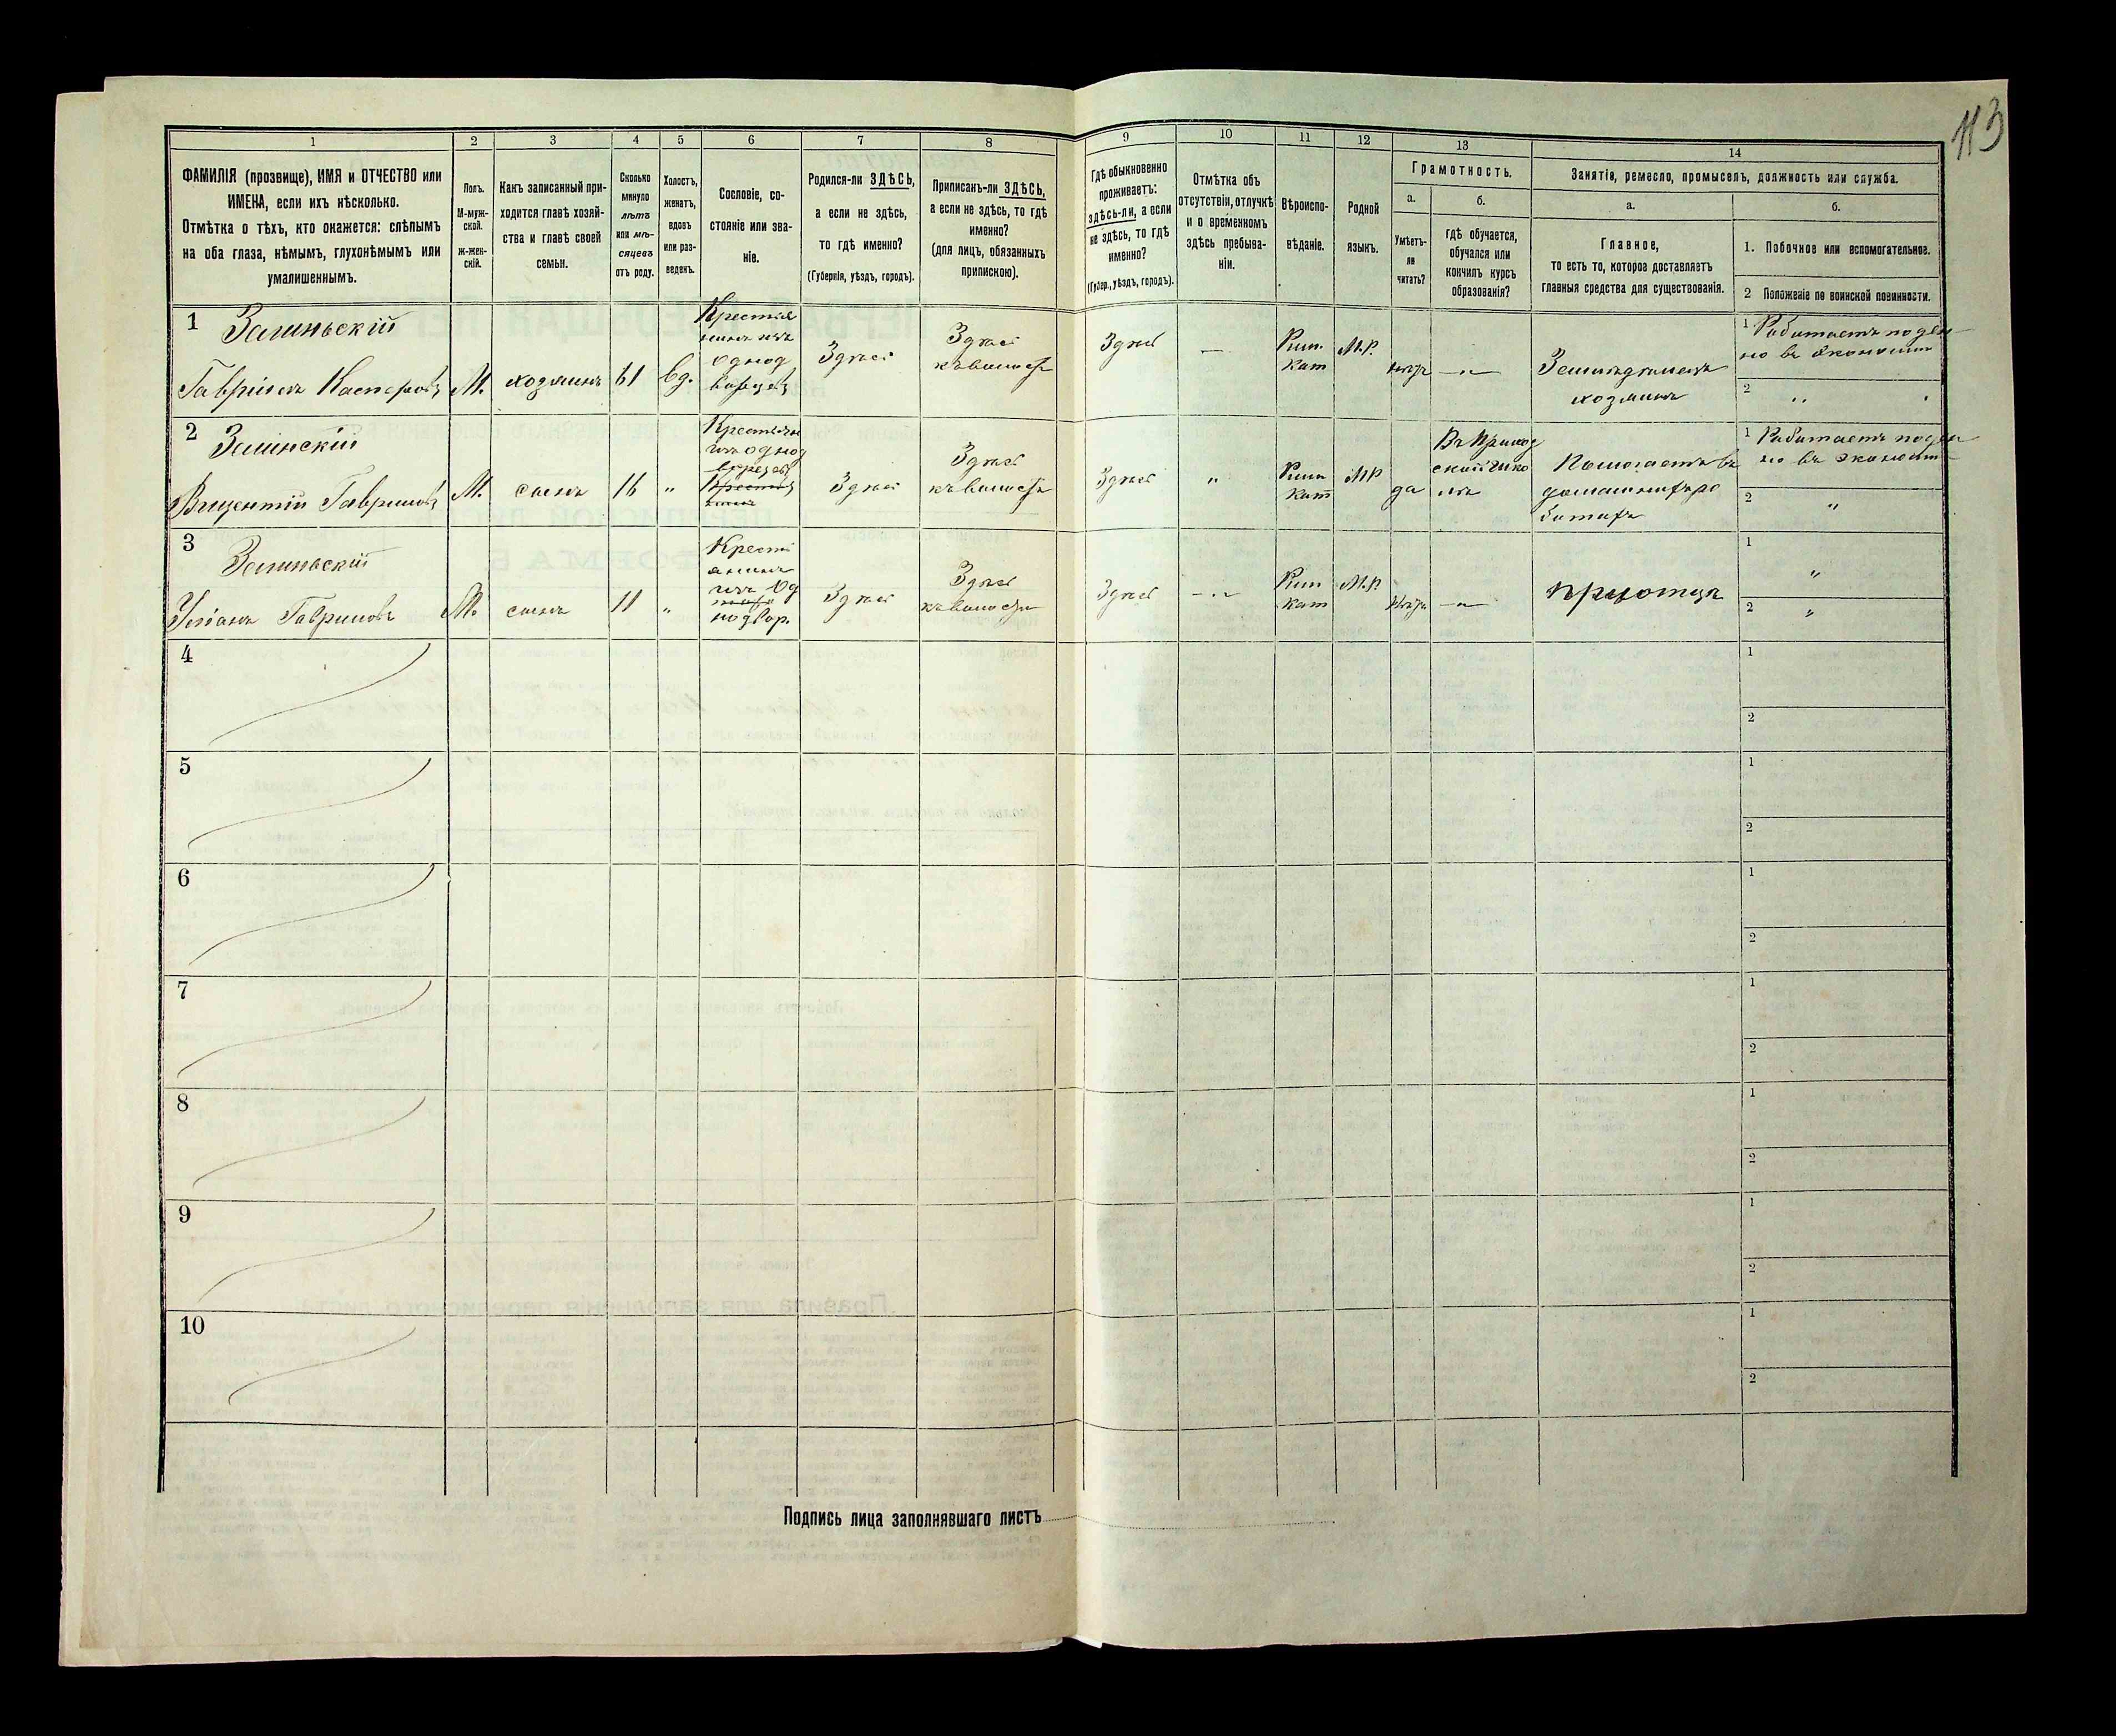 113
1
2
3
4
5
6
7
8
9
10
11
12
13
14
ФАМИЛІЯ (прозвище), ИМЯ и ОТЧЕСТВО или
ИМЕНА, если ихъ нѣсколько.
Отмѣтка о тѣхъ, кто окажется: слѣпымъ
на оба глаза, нѣмымъ, глухонѣмымъ или
умалишеннымъ.
Полъ.
М-муж-
ской.
ж-жен-
скій.
Какъ записанный при-
ходится главѣ хозяй-
ства и главѣ своей
семьи.
Сколько
минуло
лѣтъ
или мѣ-
сяцевъ
отъ роду.
Холостъ,
женатъ,
вдовъ
или раз-
веденъ.
Сословіе, со-
стояніе или зва-
ніе.
Родился-ли ЗДѢСЬ,
а если не здѣсь,
то гдѣ именно?
(Губернія, уѣздъ, городъ).
Приписанъ-ли ЗДѢСЬ,
а если не здѣсь, то гдѣ
именно?
(для лицъ, обязанныхъ
припискою).
Гдѣ обыкновенно
проживаетъ:
здѣсь-ли, а если
не здѣсь, то гдѣ
именно?
(Губер., уѣздъ, городъ).
Отмѣтка объ
отсутствіи, отлучкѣ
и о временномъ
здѣсь пребыва-
ніи.
Вѣроиспо-
вѣданіе.
Родной
языкъ.
Грамотность.
а.
Умѣетъ-
ли
читать?
б.
гдѣ обучается,
обучался или
кончилъ курсъ
образованія?
Занятіе, ремесло, промыселъ, должность или служба.
а.
Главное,
то есть то, которое доставляетъ
главныя средства для существованія.
б.
1. Побочное или вспомогательное.
2 Положеніе по воинской повинности.
1
Гаврiилъ Касперовъ
М.
хозяинъ
61
вд.
Крестья
нинъ изъ
однод
ворцевъ
Здѣсь
Здѣсь
къ волости
Здѣсь
—
Рим.
Кат
М.Р.
нѣтъ
—"—
Земледѣлецъ
хозяинъ
1 Работаетъ поден
но въ экономіи
2 "
2 Зелинскій
Викентій Гавриловъ
М.
сынъ
16
"
Крестьян
изъ однод
ворцевъ
Здѣсь
Здѣсь
къ волости
Здѣсь
"
Рим
Кат
МР
да
Въ приход
ской шко
лѣ
Помогаетъ въ
домашнихъ ра
ботахъ
1 Работаетъ поден
но въ экономіи
2 "
3
Гавриловъ
М.
сынъ
11
"
Крестi
анинъ
изъ Од
нодвор.
Здѣсь
Здѣсь
къ волости
Здѣсь
—"—
Рим
Кат
М.Р.
Нѣтъ
—"—
при отцѣ
1 "
2 "
4
1
2
5
1
2
6
1
2
7
1
2
8
1
2
9
1
2
10
1
2
Подпись лица заполнявшаго листъ